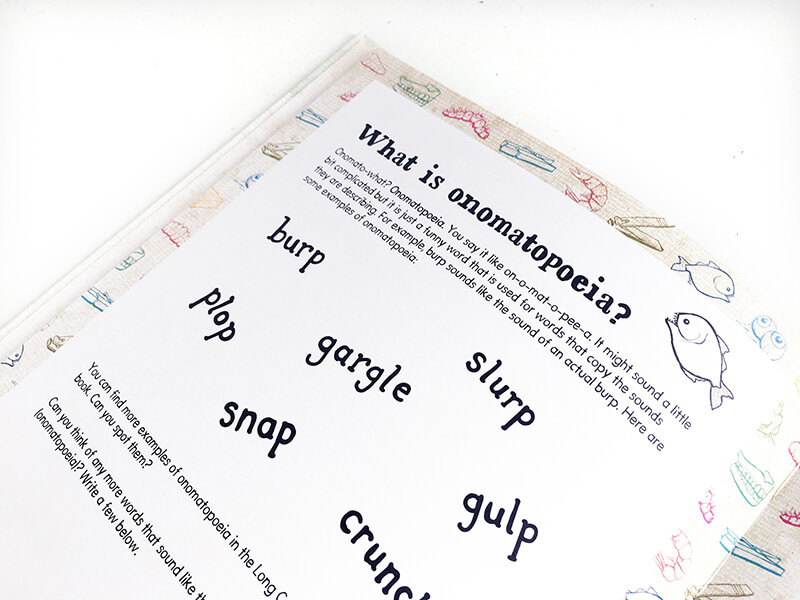 What is onomatopoeia?
Onomato-what? Onomatopoeia. You say it like on-o-mat-o-pee-a. It might sound a little
bit complicated but it is just a funny word that is used for words that copy the sounds
they are describing. For example, burp sounds like the sound of an actual burp. Here are
some examples of onomatopoeia:
burp
plop
gargle
slurp
snap
gulp
You can find more examples of onomatopoeia in the Long
book. Can you spot them?
Can you think of any more words that sound like
(onomatopoeia)? Write a few below.